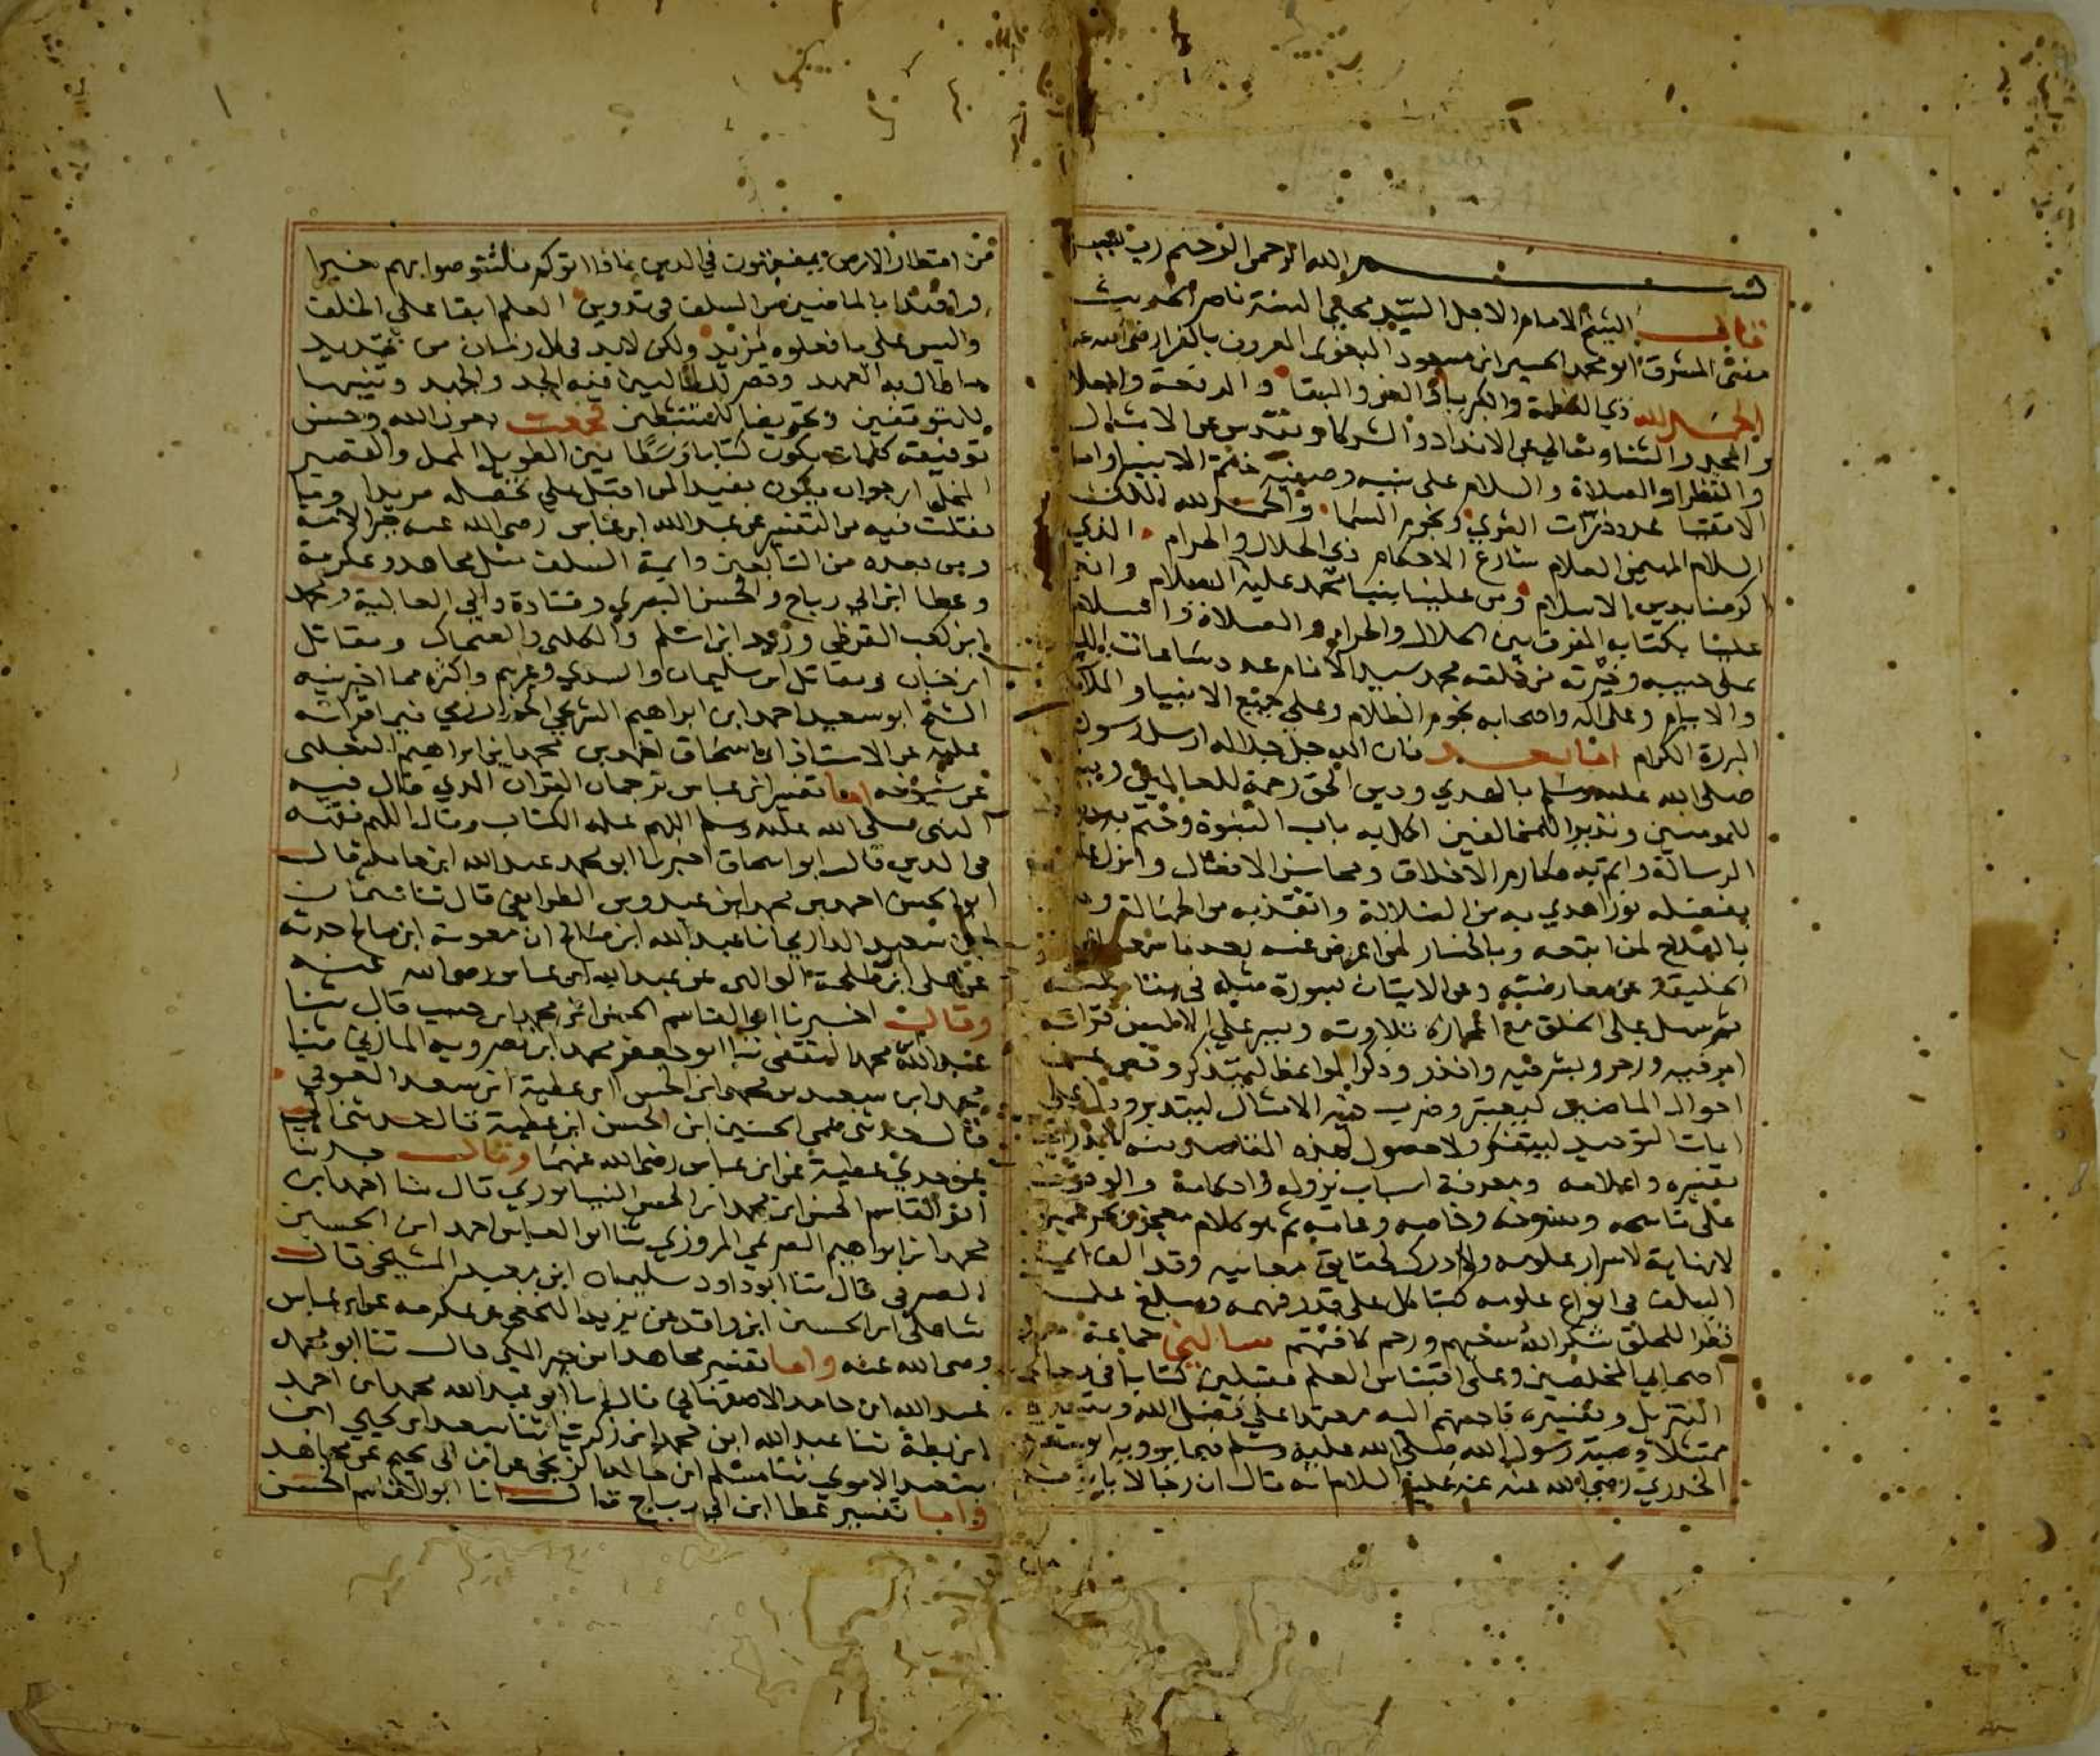 بسم الله الرحمن الرحيم رب يسر
قال الشيخ الامام الاجل السيد محيي السنة ناصر الحديث
مفتى المشرق ابو محمد الحسين ابن مسعود البغوى المعروف بالفرا رضى الله عنه
الحمد لله ذي العظمة والكبريا والعز والبقا والرفعة والعلا
والمجد والثنا وتعالى عن الانداد والشركا وتقدس عن الامثال
والنظرا والصلاة والسلام على نبيه وصفيه خاتم الانبيا وامام
الاتقيا عدد ذرات الثرى ونجوم السما والحمد لله الملك
السلام المهيمن العلام شارع الاحكام ذى الجلال والاكرام الذي
اكرمنا بدين الاسلام ومن علينا بنبينا محمد عليه السلام وانعم
علينا بكتابه المفرق بين الحلال والحرام والصلاة والسلام
على حبيبه وخيرته من خلقه محمد سيد الانام عدد ساعات الليالي
والايام وعلى اله واصحابه نجوم الظلام وعلى جميع الانبيا والملائكة
البررة الكرام اما بعد فان الله جل جلاله ارسل رسوله
صلى الله عليه وسلم بالهدى ودين الحق رحمة للعالمين وبشيرا
للمومنين ونذيرا للمخالفين اكمل به باب النبوة وختم به
الرسالة واتم به مكارم الاخلاق ومحاسن الافعال وانزل عليه
بفضله نورا هدي به من الضلالة وانقذ به من الجهالة
بالفلاح لمن اتبعه وبالخسار لمن اعرض عنه بعد ما سمعه
الخليقة عن معارضته وعن الاتيان بسورة مثله في مقابلته
ثم سهل على الخلق مع اعجازه تلاوته ويسر على الالسن قراته
امر فيه وزجر وبشر فيه وانذر وذكر المواعظ ليتذكر وقص عن
احوال الماضين ليعتبر وضرب فيه الامثال ليتدبر ودل على
ايات التوحيد ليتفكر ولا حصول لهذه المقاصد منه الا بدراية
تفسيره واعلامه ومعرفة اسباب نزوله واحكامه والوقوف
على ناسخه ومنسوخه وخاصه وعامه ثم هو كلام معجز وبحر عميق
لا نهاية لاسرار علومه ولا درك لحقايق معانيه وقد الف ائمة
السلف فى انواع علومه كتبا كل على قدر فهمه ومبلغ علمه
نظرا للخلق شكر الله سعيهم ورحم كافتهم فسالني جماعة من
اصحابي المخلصين وعلى اقتباس العلم مقبلين كتابا في معالم
التنزيل وتفسيره فاجبتهم اليه معتمدا على فضل الله وتيسيره
ممتثلا وصية رسول الله صلى الله عليه وسلم فيما يرويه ابو سعيد
الخدري رضى الله عنه عنه عليه السلام انه قال ان رجالا ياتونكم
من اقطار الارض يتفقهون في الدين فاذا اتوكم فاستوصوا بهم خيرا
واقتدا بالماضين من السلف فى تدوين العلم ابقا على الخلف
وليس على ما فعلوه مزيد ولكن لابد فى كل زمان من تجديد
ما طال به العهد وقصر للطالبين فيه الجد والجهد وتنبيها
للمتوقفين وتحريضا للمتثبطين فجمعت بعون الله وحسن
توفيقه كلمات يكون كتابا وسطا بين الطويل الممل والقصير
المخل ارجو ان يكون مفيدا لمن اقبل على تحصيله مريدا وما
نقلت فيه من التفسير عن عبد الله ابن عباس رضى الله عنه حبر الامة
ومن بعده من التابعين وايمة السلف مثل مجاهد وعكرمة
وعطا ابن ابى رباح والحسن البصري وقتادة وابي العالية ومحمد
ابن كعب القرظى وزيد ابن اسلم والكلبى والضحاك ومقاتل
ابن حيان ومقاتل ابن سليمان والسدي وغيرهم واكثره مما اخبرنيه
الشيخ ابو سعيد احمد ابن ابراهيم الشريحي الخوارزمي فيما قراته
عليه عن الاستاذ ابى اسحاق احمد بن محمد ابن ابراهيم الثعلبى
عن شيوخه اما تفسير ابن عباس ترجمان القران الذي قال فيه
النبى صلى الله عليه وسلم اللهم علمه الكتاب وقال اللهم فقهه
فى الدين قال ابو اسحاق اخبرنا ابو محمد عبد الله ابن حامد قال
ابو الحسن احمد بن محمد ابن عبدوس الطرايفى قال ثنا عثمان
ابن سعيد الدارمي انا عبد الله ابن صالح ان معوية ابن صالح حدثه
عن على ابن طلحة الوالبى عن عبد الله ابن عباس رضى الله عنه
وقال اخبرنا ابو القاسم الحسن ابن محمد ابن حبيب قال ثنا
عبد الله محمد الثقفى ثنا ابو جعفر محمد ابن نصرويه المازنى ثنا
محمد ابن سعيد بن محمد ابن الحسن ابن عطية ابن سعد العوفي
قال حدثنى عمى الحسين ابن الحسن ابن عطية قال حدثنى ابى
عن جدي عطية عن ابن عباس رضى الله عنهما وقال حدثنا
ابو القاسم الحسن ابن محمد ابن الحسن النيسابوري قال ثنا احمد ابن
محمد ابن ابراهيم الصريمي المروزي ثنا ابو العباس احمد ابن الحسين
الصرفى قال ثنا ابو داود سليمان ابن معبد السنجى قال
ثنا على ابن الحسين ابن واقد عن يزيد النحوى عن عكرمه عن ابن عباس
رضى الله عنه واما تفسير مجاهد ابن جبر المكى قال ثنا ابو محمد
عبد الله ابن حامد الاصفهانى قال انا ابو عبد الله محمد ابن احمد
ابن بطة ثنا عبد الله ابن محمد ابن زكريا ثنا سعيد ابن يحيي ابن
سعيد الاموي ثنا مسلم ابن خالد الزنجى عن ابن ابى نجيح عن مجاهد
واما تفسير عطا ابن ابى رباح قال انا ابو القاسم الحسن